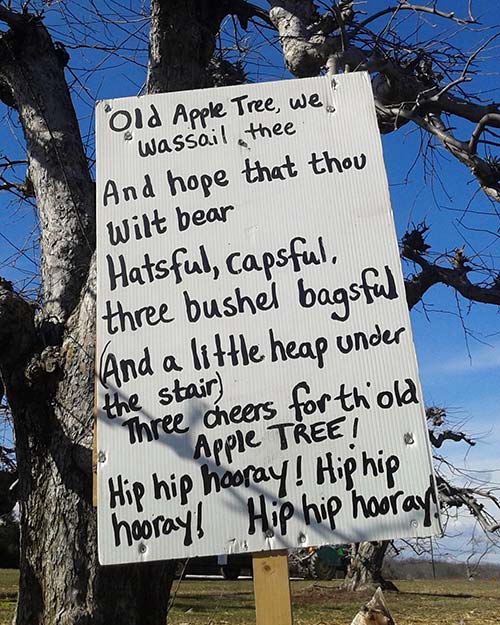 "Old Apple Tree, we
wassail thee
And hope that thou
Wilt bear
Hatsful, capsful,
three bushel bagsful
(And a little heap under
the stair)
Three cheers for th' old
Apple TREE!
Hip hip hooray! Hip hip
hooray! Hip hip hooray!